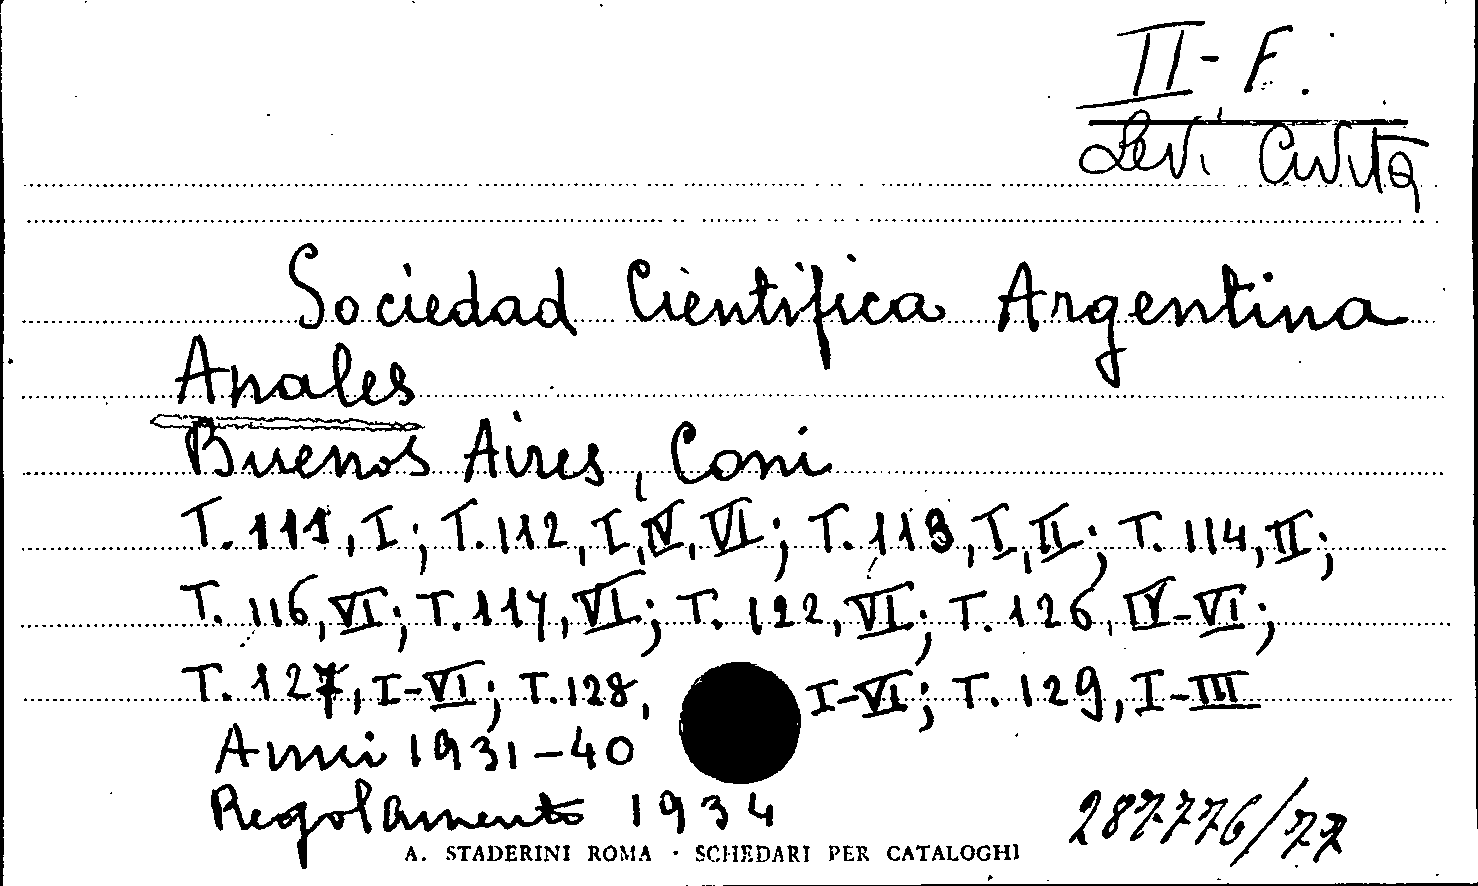 II-F.
Levi Civita
Sociedad Cientifica Argentina
Anales
Buenos Aires, Coni
T. 111, I; T. 112, I, IV, VI; T. 113, I, II; T. 114, II;
T. 116, VI; T. 117, VI; T. 122, VI; T. 126, IV-VI;
T. 127, I-VI; T. 128, I-VI; T. 129, I-III
Anni 1931-40
Regolamento 1934
287776/77
A. STADERINI ROMA · SCHEDARI PER CATALOGHI